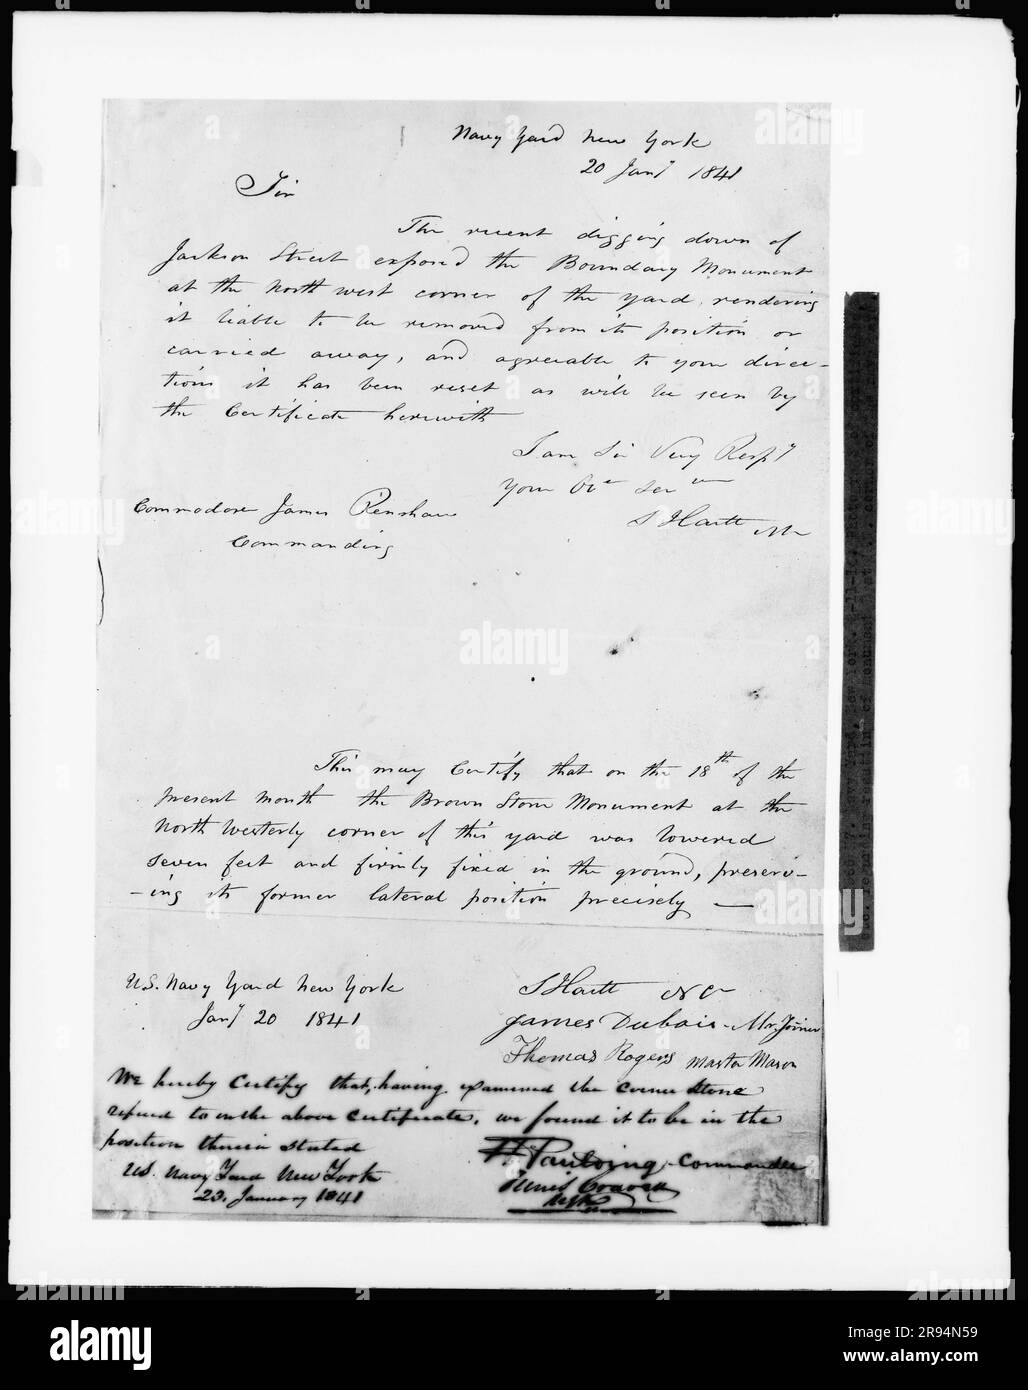 Navy Yard New York
20 Jany 1841
Sir
The recent digging down of
Jackson Street exposed the Boundary Monument
at the North west corner of the Yard, rendering
it liable to be removed from its position or
carried away, and agreeable to your direc-
tions it has been reset as will be seen by
the Certificate herewith
I am Sir Very Respy
Your Obt Servt
S Hartt
Commodore James Renshaw
Commanding
This may Certify that on the 18th of the
present month the Brown Stone Monument at the
North Westerly corner of this yard was lowered
seven feet and firmly fixed in the ground, preserv-
-ing its former lateral position precisely —
U.S. Navy Yard New York
Jany 20 1841
S Hartt N C
James Dubois - Mr. Joiner
Thomas Rogers Master Mason
We hereby Certify that, having examined the corner Stone
refered to in the above Certificate, we found it to be in the
position therein stated
U.S. Navy Yard New York
23, January 1841
H. Paulding - Commander
Tunis Craven
alamy
Image ID: 2R94N59
www.alamy.com